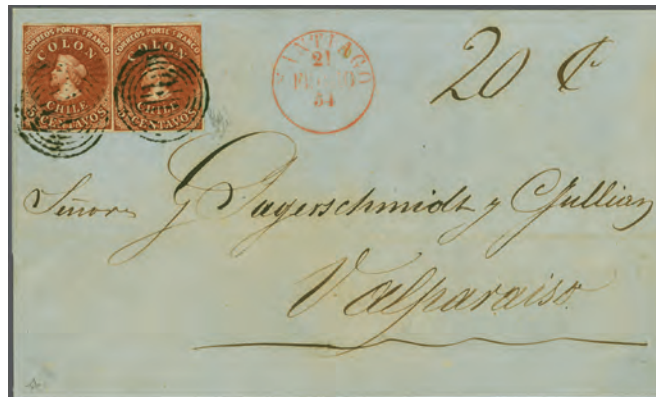 CORREOS PORTE FRANCO
COLON
CHILE
5 CENTAVOS
CORREOS PORTE FRANCO
COLON
CHILE
5 CENTAVOS
SANTIAGO
21
54
20 C
Señores
Valparaiso